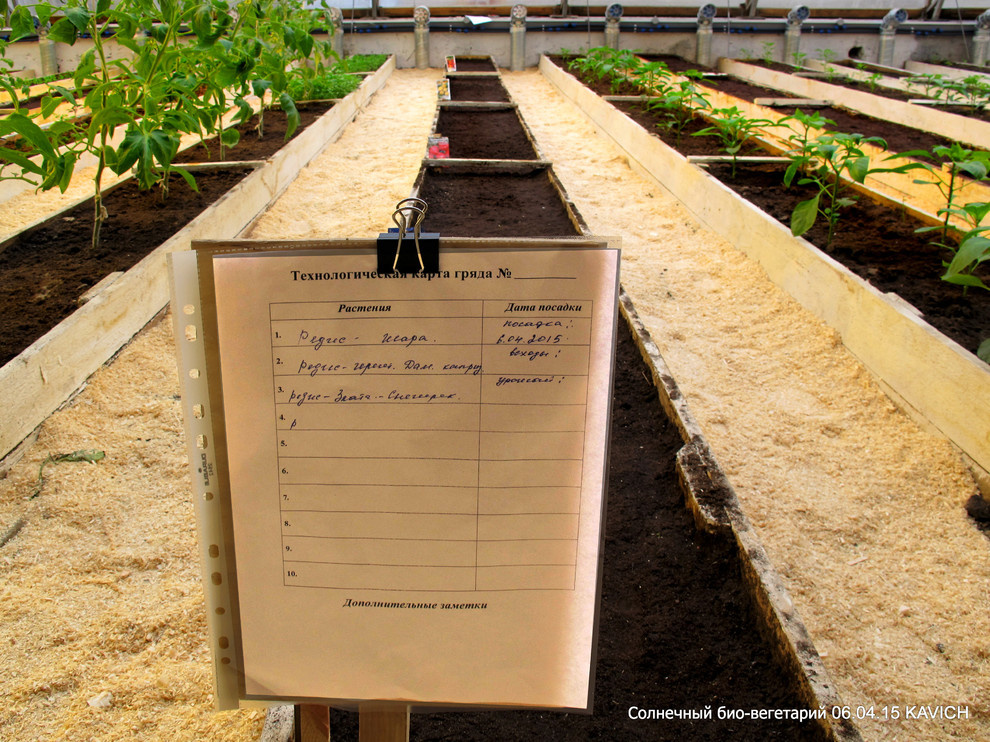 Технологическая карта гряда № ________
Растения Дата посадки
посадка:
1. Редис - Жара. 6.04.2015
всходы:
2. Редис - черет. Дам. каприз
урожай:
3. редис - Злата - Снегирек.
4. р
5.
6.
7.
8.
9.
10.
Дополнительные заметки
Солнечный био-вегетарий 06.04.15 KAVICH